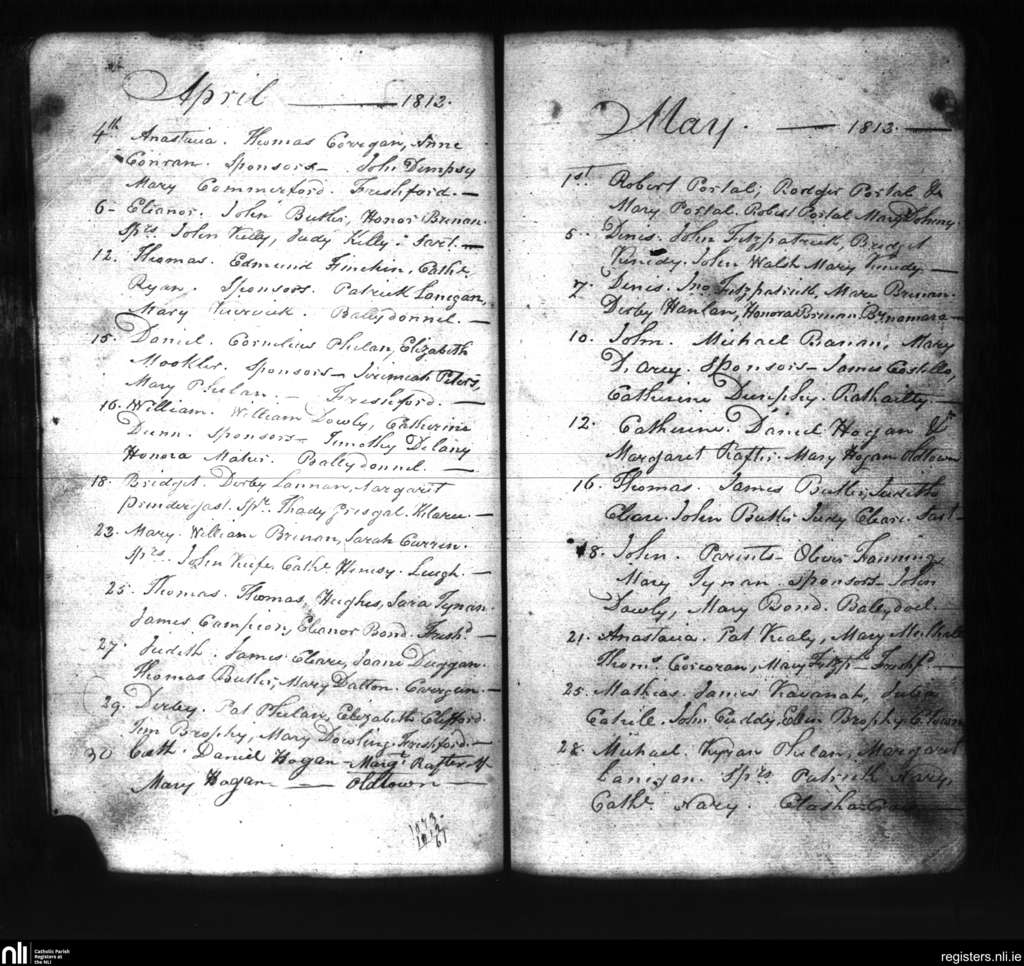 April — 1813.
4th Anastatia. Thomas Corregan, Anne
Conran. Sponsors – John Dempsy
Mary Commerford. Freshford. —
6 – Elianor. John Butler, Honor Brenan.
Sprs. John Kelly, Judy Kelly. Tart. —
12. Thomas. Edmund Finchin, Cathe.
Ryan. Sponsors. Patrick Lanigan,
Mary Ballydonnel. —
15. Daniel. Cornelius Phelan, Elizabeth
Mockler. Sponsors – Jeremiah Peters,
Mary Phelan. – Freshford. —
16. William. William Dowly, Catherine
Dunn. Sponsors – Timothy Delany
Honora Maher. Ballydonnel. —
18. Bridget. Derby Lannan, Margaret
Prindergast. Spr. Thady Grisgal. Kilaree. —
23. Mary. William Brenan, Sarah Curren.
Sprs. John Keefe, Cathe. Henesy. Lugh. —
25. Thomas. Thomas Hughes, Sara Tynan.
James Campion, Eleanor Bond. Fresh. —
27. Judith. James Cleare, Joane Duggan.
Thomas Butler, Mary Dalton. Carrgan. —
29. Derby. Pat Phelan, Elizabeth Clifford.
Tim Brophy, Mary Dowling. Freshford. —
30 Cath. Daniel Hogan – Margt. Rafter
Mary Hogan — Oldtown —
1873.
1812
61
May. — 1813. —
1st. Robert Portal; Rodger Portal &
Mary Portal. Robert Portal Mary Doheny.
5. Dinis. John Fitzpatrick, Bridget
Kenedy. John Walsh Mary Kenedy —
7. Denis. Jno. Fitzpatrick, Mary Brenan.
Derby Hanlan, Honora Brenan. Brnamara —
10. John. Michael Banan, Mary
D'arcy. Sponsors – James Costello,
Catherine Dunphy. Rathailty —
12. Catherine. Daniel Hogan &
Margaret Rafter. Mary Hogan Oldtown
16. Thomas. James Butler, Judith
Cleare. John Butler Judy Cleare. Tart –
18. John. Parents – Oliver Fanning
Mary Tynan. Sponsors – John
Dowly, Mary Bond. Balleydoel. —
21. Anastatia. Pat Kealy, Mary Mulhall
Thoms. Corcoran, Mary Fitzp – Freshfd. —
25. Mathias. James Kavanah, Julia
Cahile. John Cuddy, Ellen Brophy C.town
28. Michael. Kyran Phelan, Margaret
Lanigan. Sprs. Patrick Nary,
Cathe. Nary.
nli
Catholic Parish
Registers at
the NLI
registers.nli.ie